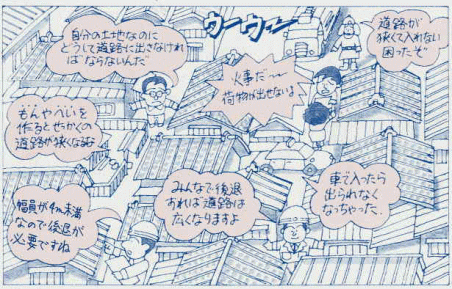 自分の土地なのに
どうして道路に出さなければ
ならないんだ
ウーウー
道路が
狭くて入れない
困ったぞ
火事だ〜
荷物が出せないよ
もんやへいを
作るとせっかくの
道路が狭くなるよ
みんなで後退
すれば道路は
広くなりますよ
車で入ったら
出られなく
なっちゃった
幅員が4m未満
なので後退が
必要ですね